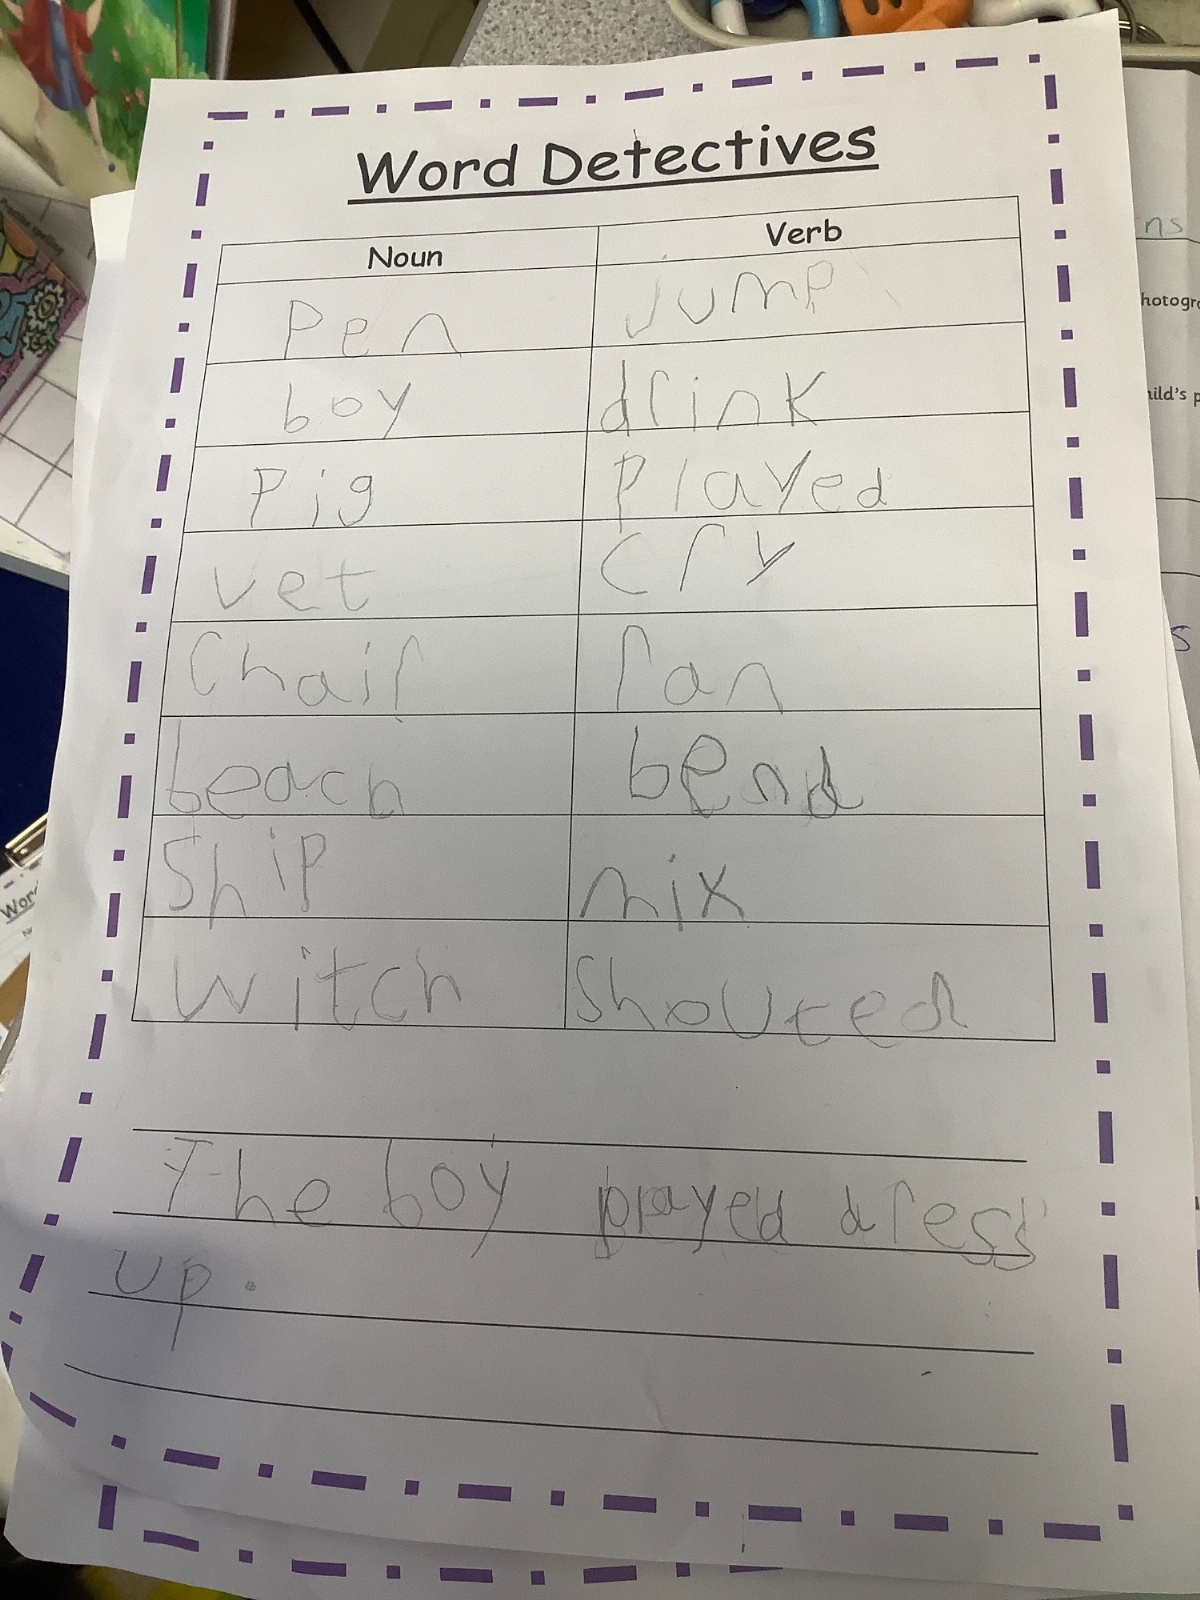 Word Detectives
Noun Verb
Pen Jump
boy drink
Pig Played
vet Cry
Chair ran
beach bend
Ship mix
witch Shouted
The boy played dress
up.
ns
hotogr
hild's p
s
Wor